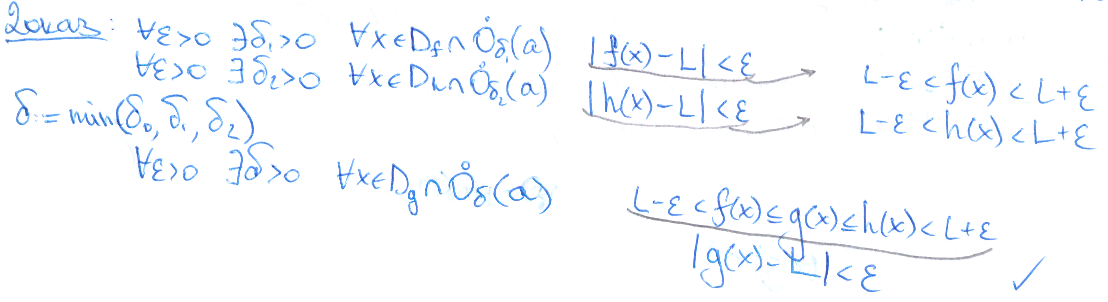 Доказ: ∀ε>0 ∃δ₁>0 ∀x∈D_f∩O̊_δ₁(a) |f(x)-L|<ε → L-ε<f(x)<L+ε
∀ε>0 ∃δ₂>0 ∀x∈D_h∩O̊_δ₂(a) |h(x)-L|<ε → L-ε<h(x)<L+ε
δ:=min(δ₀,δ₁,δ₂)
∀ε>0 ∃δ>0 ∀x∈D_g∩O̊_δ(a) L-ε<f(x)≤g(x)≤h(x)<L+ε
|g(x)-L|<ε ✓